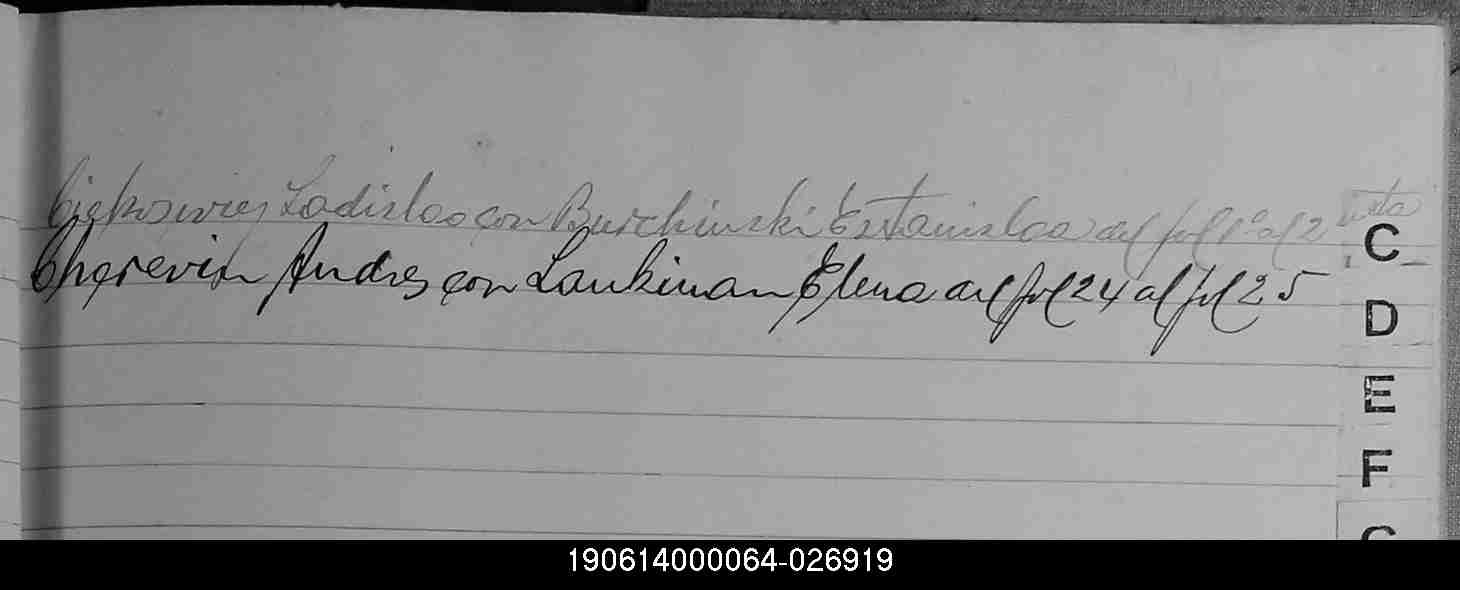 Ladislao con Burchinski Estanislao del fol 1º al 2 vuelta
Cherevin Andres con Laukinan Elena del fol 24 al fol 25
C
D
E
F
190614000064-026919